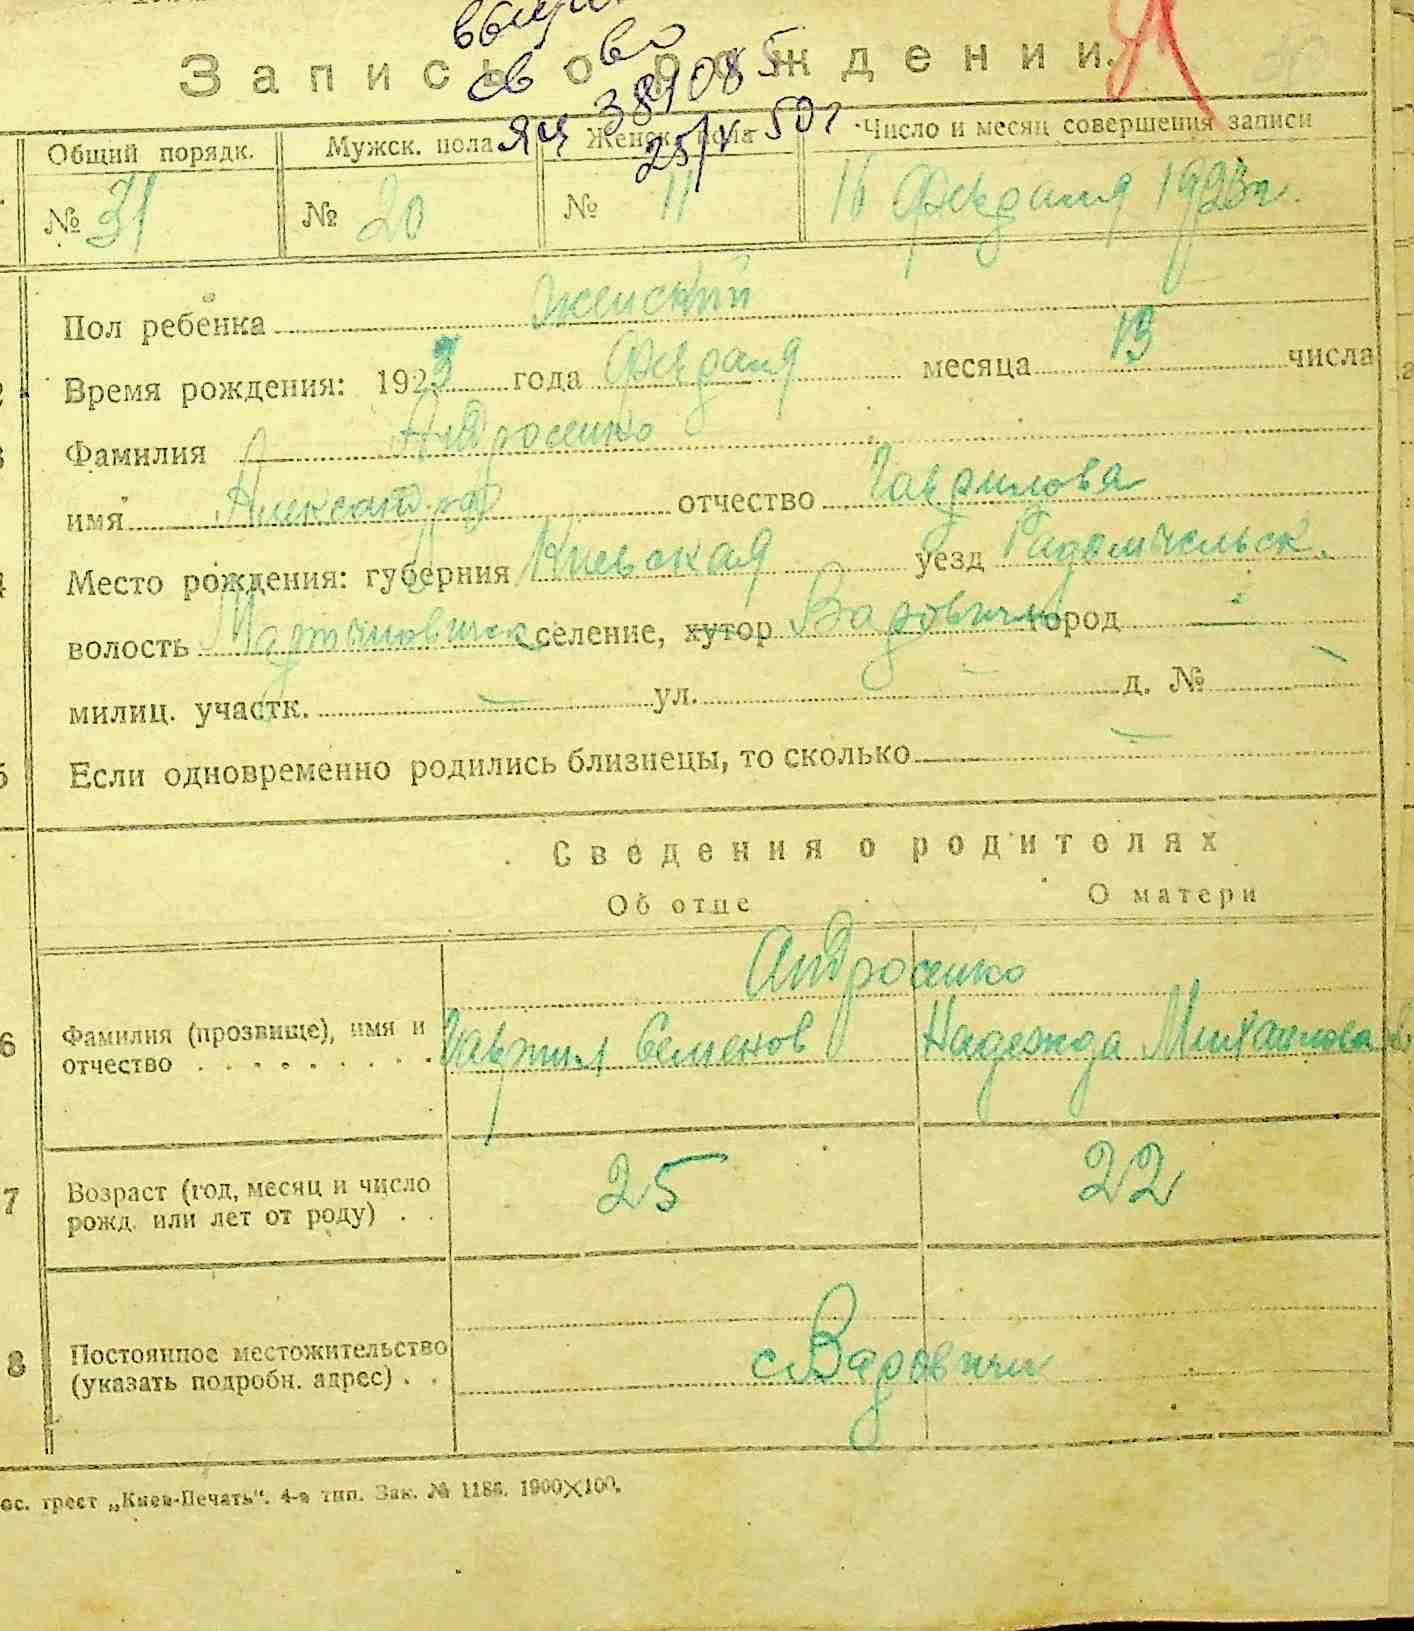 св во
Запись о рождении.
ЯЦ 381085
25/V-50г
Общий порядк. Мужск. пола Женск. пола Число и месяц совершения записи
№ 31 № 20 № 11 16 февраля 1923г.
Пол ребенка женский
Время рождения: 1923 года февраля месяца 13 числа
Фамилия Андросенко
имя Александра отчество Гаврилова
Место рождения: губерния Киевская уезд Радомысельск.
волость Мартыновическ селение, хутор Варовичи город —
милиц. участк. — ул. — д. № —
Если одновременно родились близнецы, то сколько —
Сведения о родителях
Об отце О матери
Андросенко
6 Фамилия (прозвище), имя и Гаврил Семенов Надежда Михайлова
отчество . . . . . . . .
7 Возраст (год, месяц и число 25 22
рожд. или лет от роду) . .
8 Постоянное местожительство с Варовичи
(указать подробн. адрес) . .
ос. трест „Киев-Печать“. 4-я тип. Зак. № 1186. 1900×100.